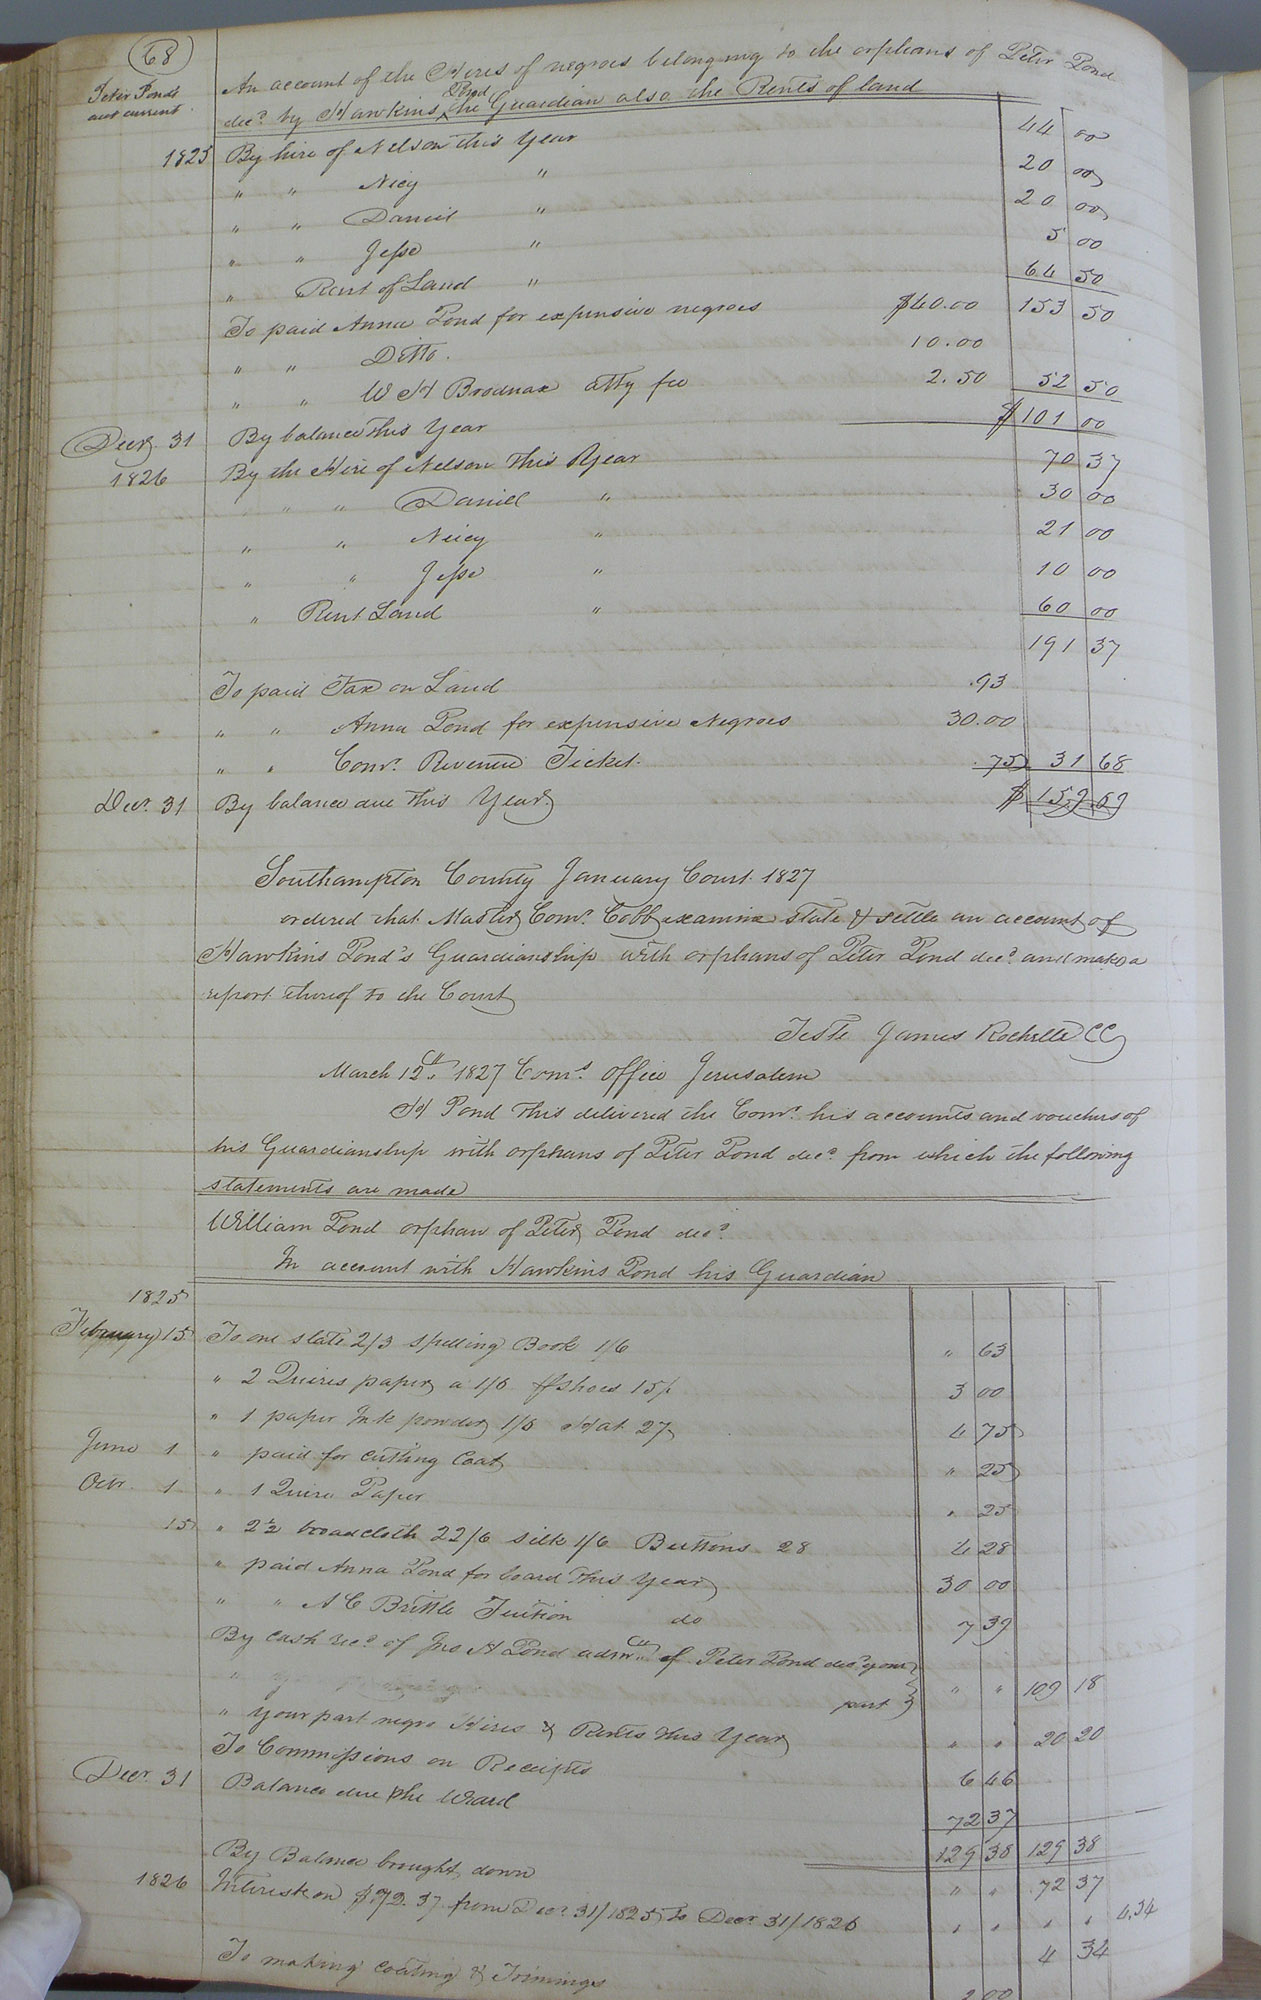 68
Peter Ponds
acct current
An account of the Hires of negroes belonging to the orphans of Peter Pond
decd by Hawkins Pond the Guardian also the Rents of land
1825 By hire of Nelson this Year 44 00
" " Nicy " 20 00
" " Daniel " 20 00
" " Jesse " 5 00
" Rent of Land " 64 50
To paid Anna Pond for expensive negroes $40.00 153 50
" " Ditto. 10.00
" " W H Brodnax atty fee 2.50 52 50
Decr 31 By balance this Year $101 00
1826 By the Hire of Nelson this Year 70 37
" " Daniel " 30 00
" " Nicey " 21 00
" " Jesse " 10 00
" Rent Land " 60 00
191 37
To paid Tax on Land .93
" " Anna Pond for expensive Negroes 30.00
" " Comr. Revenue Ticket. .75 31 68
Decr. 31 By balance due this Year $159 69
Southampton County January Court 1827
ordered that Master Comr. Cobb examine state & settle an account of
Hawkins Pond's Guardianship with orphans of Peter Pond decd. and make a
report thereof to the Court
Teste James Rochelle CC
March 12th 1827 Comrs office Jerusalem
H Pond this delivered the Comr. his accounts and vouchers of
his Guardianship with orphans of Peter Pond decd. from which the following
statements are made
William Pond orphan of Peter Pond decd.
In account with Hawkins Pond his Guardian
1825
February 15 To one slate 2/3 spelling Book 1/6 " 63
" 2 Quires paper a 1/6 shoes 15/. 3 00
" 1 paper Ink powder 1/6 Hat 27/ 4 75
June 1 " paid for cutting Coat " 25
Octr. 1 " 1 Quire Paper " 25
15 " 2½ broadcloth 22/6 silk 1/6 Buttons 28 4 28
" paid Anna Pond for board this Year 30 00
" " A C Brittle Tuition do 7 39
By cash recd. of Jno H Pond admr of Peter Pond decd your
part " " 109 18
" your part negro Hires & Rents this Year " " 20 20
To Commissions on Receipts 6 46
Decr. 31 Balance due the Ward 72 37
129 38 129 38
By Balance brought down " " 72 37
1826 Interest on $72.37 from Decr. 31/1825 to Decr 31/1826 " " " " 4.34
4 34
To making coating & Trimings 2 00